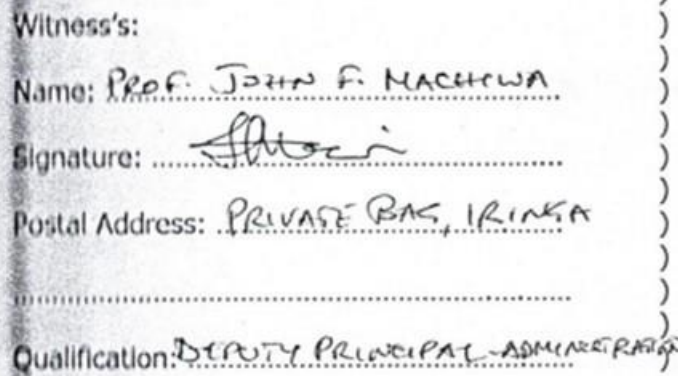 Witness's:
Name: PROF. JOHN F. MACHIWA
Signature:
Postal Address: PRIVATE BAG, IRINGA
Qualification: DEPUTY PRINCIPAL - ADMINISTRATION